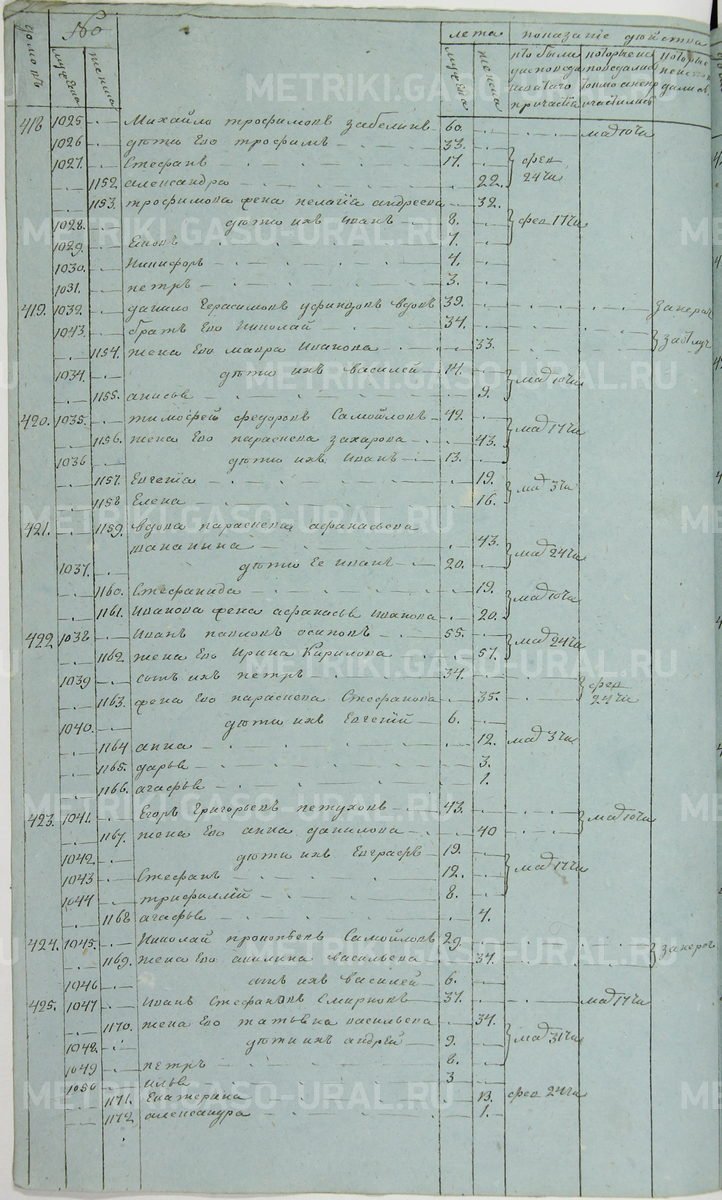 № лета показание действа
домовъ мужска женска мужска женска
418 1025 Михайло трофимовъ забелинъ 60. мар 10 чи
1026 дѣти Его трофимъ 33.
1027. Стефанъ 17. фев
1152 александра 22. 24 чи
1153. трофимова жена пелагія андреева 32.
1028. дѣти ихъ иванъ 8. фев 17 чи
1029. 7.
1030. Никифоръ 4.
1031. петръ 3.
419. 1032. данило Герасимовъ вдовъ 39.
1043. братъ Его Николай 34.
1154. жена Его мавра Иванова 33.
1034. дѣти ихъ василей 14. мар 10 чи
1155. анисья 9.
420. 1035. тимофей федоровъ Самойловъ 42. мар 17 чи
1156. жена Его параскева захарова 43.
1036 дѣти ихъ Иванъ 13.
1157. Евгенія 19. мар 3 чи
1158 Елена 16.
421. 1159. вдова параскева афанасьева
43. мар 24 чи
1037. дѣти Ее иванъ 20.
1160. Стефанида 19. мар 10 чи
1161. Иванова жена афанасья иванова 20.
422 1038 Иванъ павловъ осиповъ 55. мар 24 чи
1162. жена Его Ирина Кирилова 51.
1039 сынъ ихъ петръ 34. фев
1163. жена Его параскева Стефанова 35. 24 чи
1040. дѣти ихъ Евгеній 6.
1164 анна 12. мар 3 чи
1165. дарья 3.
1166. агафья 1.
423. 1041. Егоръ Григорьевъ петуховъ 43. мар 10 чи
1167. жена Его анна данилова 40
1042. дѣти ихъ Евграфъ 19.
1043 Стефанъ 12. мар 17 чи
1044 трифиллій 8.
1168 агафья 4.
424. 1045. Николай прокопьевъ Самойловъ 29.
1169. жена Его акилина васильева 31.
1046 сынъ ихъ василей 6.
425. 1047 Иванъ Стефановъ Смирновъ 37. мар 17 чи
1170. жена Его татьяна васильева 34.
1048. дѣти ихъ андрей 9. мар 31 чи
1049 петръ 8.
1050 илья 3
1171. Екатерина 13. фев 24 чи
1172 александра 1.
METRIKI.GASO-URAL.RU